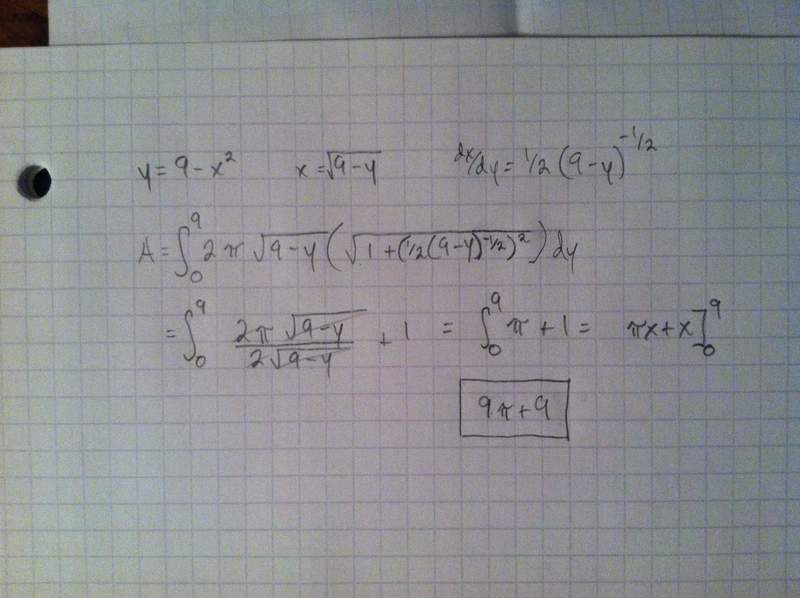 y = 9 - x² x = √(9-y) dx/dy = 1/2 (9-y)^(-1/2)
A = ∫₀⁹ 2π √(9-y) (√(1+(1/2(9-y)^(-1/2))²)) dy
= ∫₀⁹ (2π √(9-y))/(2√(9-y)) + 1 = ∫₀⁹ π + 1 = πx + x]₀⁹
9π+9